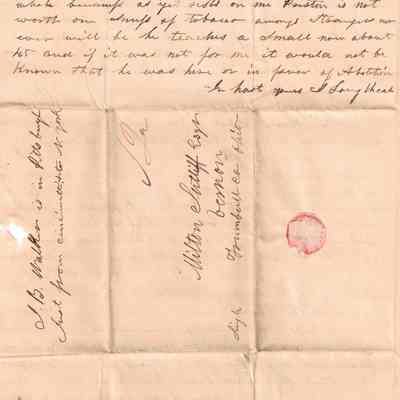 whole business as yet rests on me Punston is not
worth one chuff of tobacco among Strangers nor
ever will be he teaches a Small now about
15 and if it was not for me it would not be
Known that he was here or in favor of Abolition
In hast yours J Longshead
J. B. Walker is in Pittsburgh
Just from cincinnati to N york
Milton Sutliff Esqr
Vernon
Trumbull co ohio